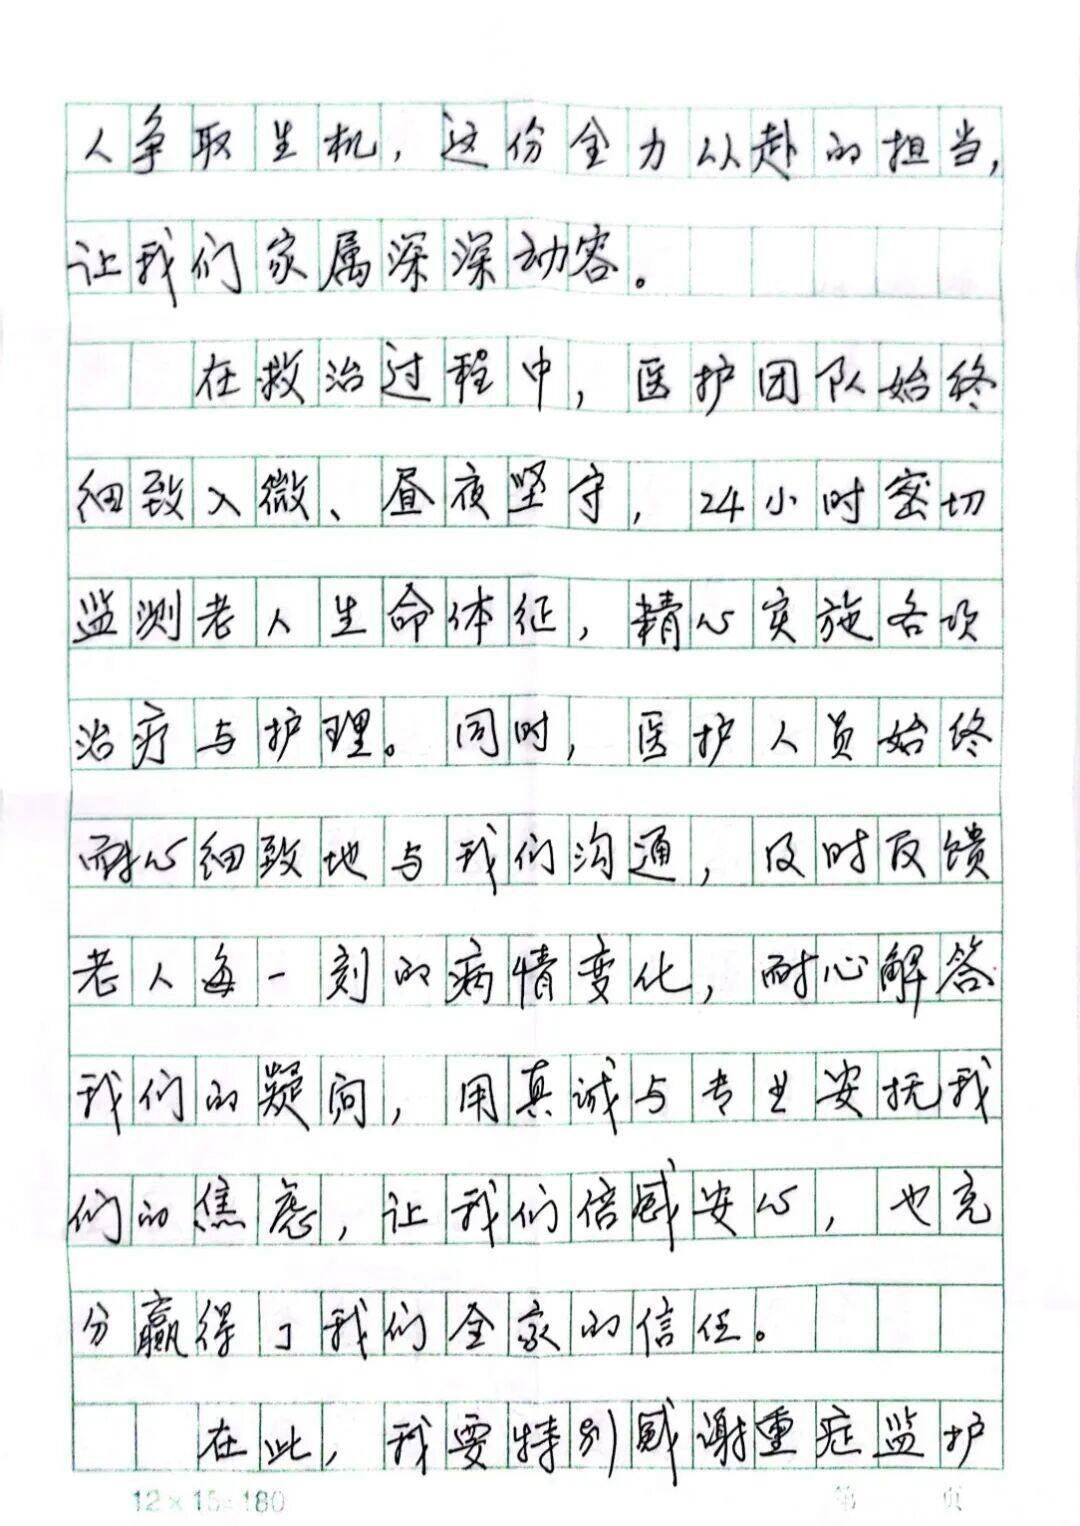 人争取生机，这份全力以赴的担当，
让我们家属深深动容。
在救治过程中，医护团队始终
细致入微、昼夜坚守，24小时密切
监测老人生命体征，精心实施各项
治疗与护理。同时，医护人员始终
耐心细致地与我们沟通，及时反馈
老人每一刻的病情变化，耐心解答
我们的疑问，用真诚与专业安抚我
们的焦虑，让我们倍感安心，也充
分赢得了我们全家的信任。
在此，我要特别感谢重症监护
12×15=180 第 页